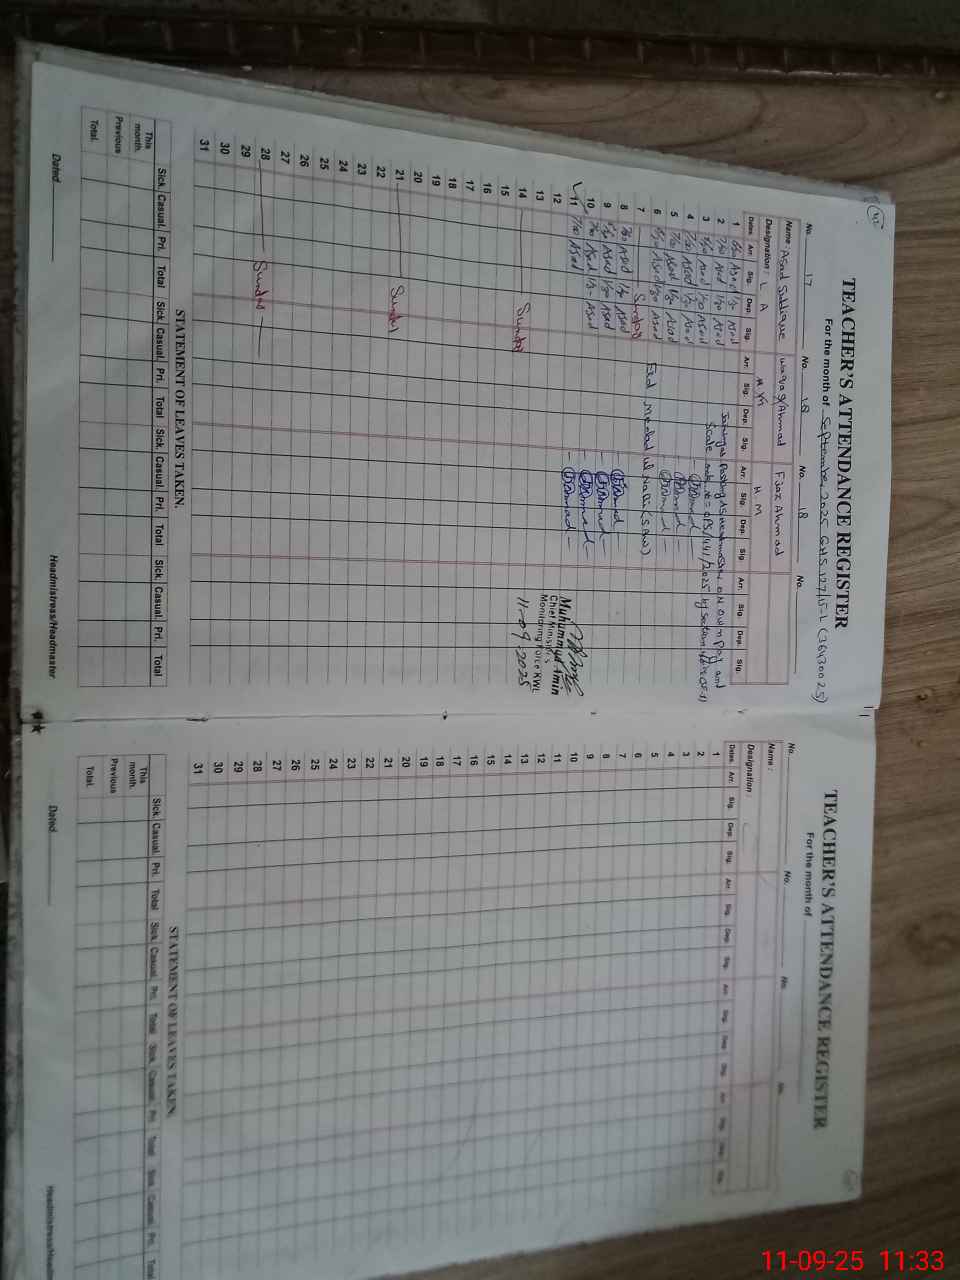 42
TEACHER'S ATTENDANCE REGISTER
For the month of September 2025 GHS 127/15-L (36430025)
No. 17 No. 18 No. 18 No.
Name: Asad Siddique Ahmad Ejaz Ahmad
Designation: L A H.M H.M
Dates. Arr. Sig. Dep. Sig. Arr. Sig. Dep. Sig. Arr. Sig. Dep. Sig. Arr. Sig. Dep. Sig.
1 Asad Asad
2 7/30 Asad 1/30 Asad
3 Asad 1/30 Asad
4 7/30 Asad 1/30 Asad
5 7/30 Asad 1/30 Asad
6 Asad 1/30 Asad Eid Meelad ul Nabi (SAW)
7 Sunday
8 7/30 Asad 1/30 Asad
9 Asad 1/30 Asad
10 7/30 Asad Asad
11 7/30 Asad
12
13
14 Sunday
15
16
17
18
19
20
21 Sunday
22
23
24
25
26
27
28 Sunday
29
30
31
as Headmaster on own Pay and
Scale
Muhammad Amin
Chief Minister's
Monitoring Force KWL
11-09-2025
STATEMENT OF LEAVES TAKEN.
Sick. Casual. Pri. Total Sick. Casual. Pri. Total Sick. Casual. Pri. Total Sick. Casual. Pri. Total
This month.
Previous
Total.
Dated Headmistress/Headmaster
TEACHER'S ATTENDANCE REGISTER
For the month of
No. No. No. No.
Name:
Designation:
Dates. Arr. Sig. Dep. Sig. Arr. Sig. Dep. Sig. Arr. Sig. Dep. Sig. Arr. Sig. Dep. Sig.
1
2
3
4
5
6
7
8
9
10
11
12
13
14
15
16
17
18
19
20
21
22
23
24
25
26
27
28
29
30
31
STATEMENT OF LEAVES TAKEN.
Sick. Casual. Pri. Total Sick. Casual. Pri. Total Sick. Casual. Pri. Total Sick. Casual. Pri. Total
This month.
Previous
Total.
Dated Headmistress/Headm
11-09-25 11:33